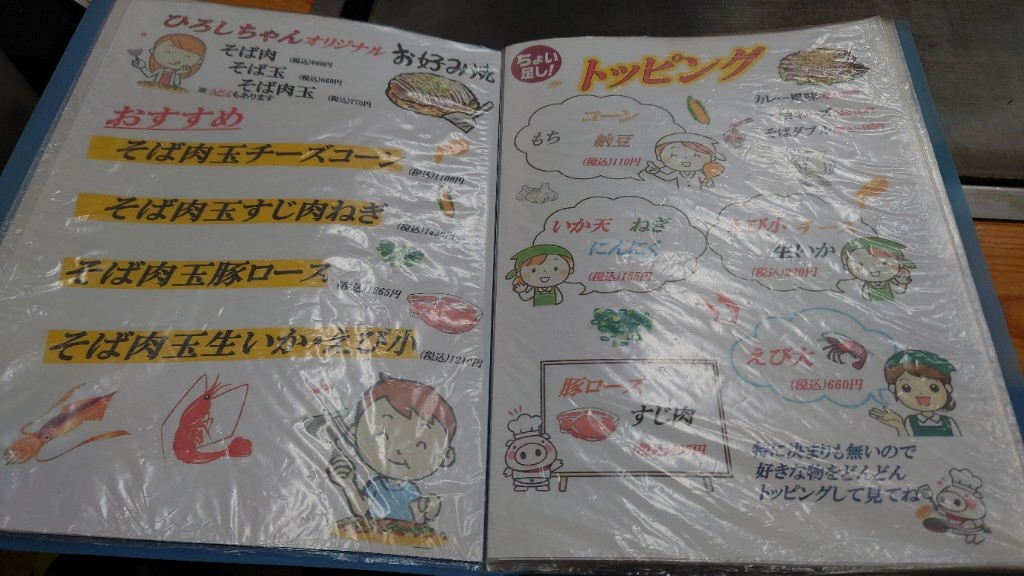 ひろしちゃんオリジナル お好み焼
そば肉 (税込)660円
そば玉 (税込)660円
そば肉玉 (税込)770円
※うどんもあります
おすすめ
そば肉玉チーズコーン
(税込)1100円
そば肉玉すじ肉ねぎ
そば肉玉豚ロース
(税込)1265円
そば肉玉生いか・えび小
ちょい足し!
トッピング
カレー風味
そばダブル
コーン
もち 納豆
(税込)110円
いか天 ねぎ
にんにく
(税込)165円
えび小 チーズ
生いか
(税込)220円
えび大
(税込)660円
豚ロース
すじ肉
特に決まりも無いので
好きな物をどんどん
トッピングして見てね